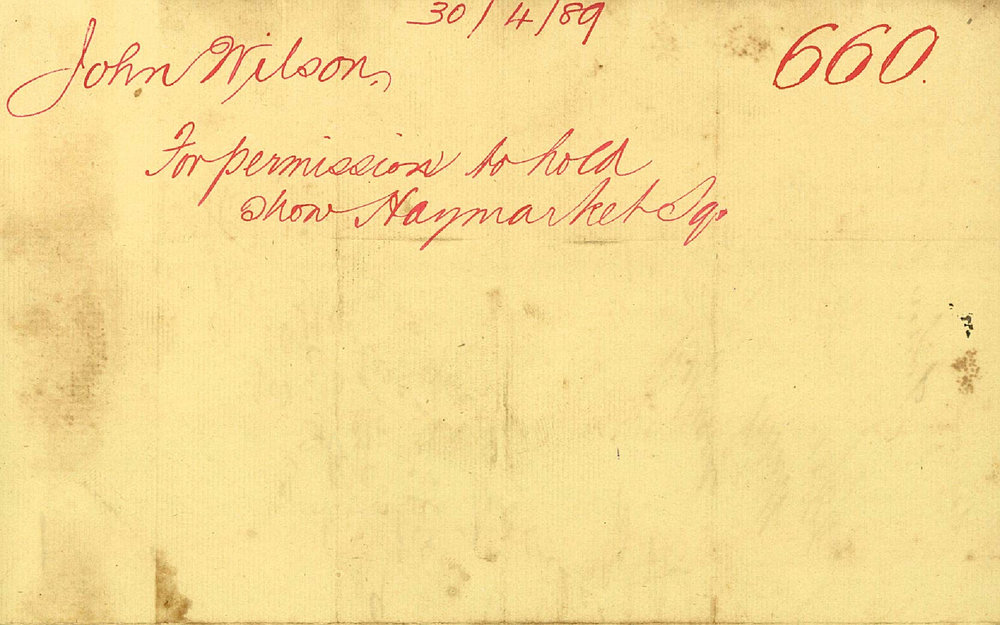 30/4/89
John Wilson, 660.
For permission to hold
show Haymarket Sq.